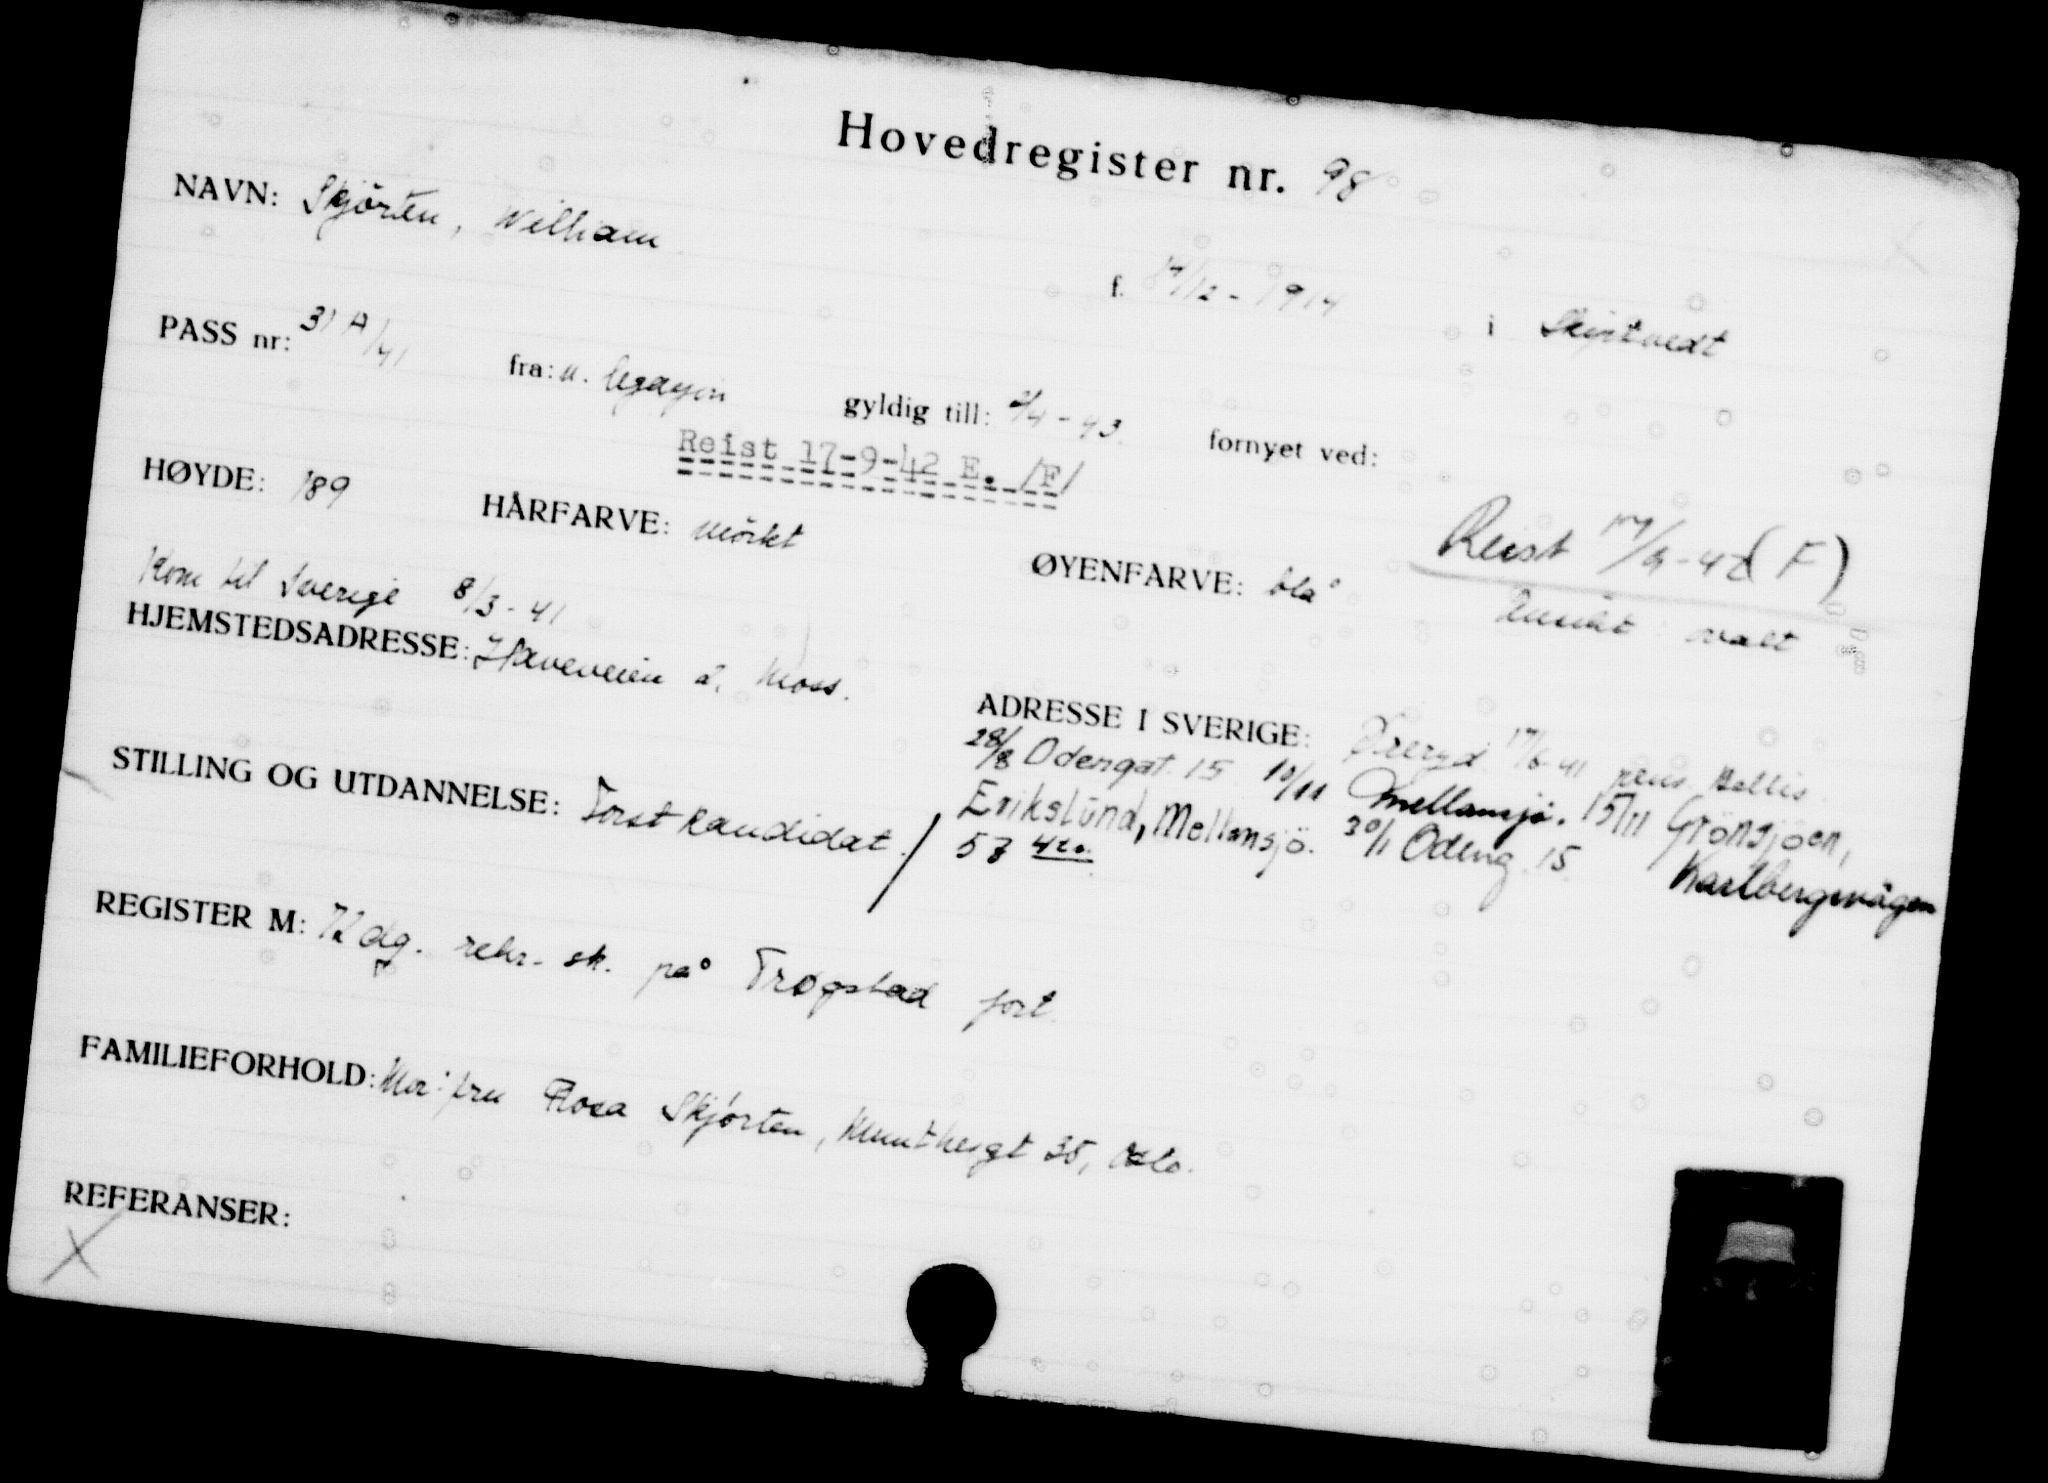 Hovedregister nr. 98
NAVN: Skjörten, William
f. 17/12 - 1914 i Skiptvedt
PASS nr: 31 A/41 fra: n. legasjon gyldig till: 2/4 - 43 fornyet ved:
Reist 17-9-42 E. /F/
HØYDE: 189 HÅRFARVE: mörkt ØYENFARVE: blå
Reist 17/9-42 (F)
Kom til Sverige 8/3-41
HJEMSTEDSADRESSE: 2, Moss.
ADRESSE I SVERIGE: Öreryd 17/6 41 pens.
28/8 Odengat. 15 10/11 Mellansjö. 15/11 Grönsjöen,
Erikslund, Mellansjö. 30/1 Odeng. 15. Karlbergsvägen
53 4 tr.
STILLING OG UTDANNELSE: Forstkandidat.
REGISTER M: 72 dg. rekr. sk. på Trøgstad fort.
FAMILIEFORHOLD: Mor: fru Rosa Skjörten, Munthesgt 35, Oslo.
REFERANSER:
X